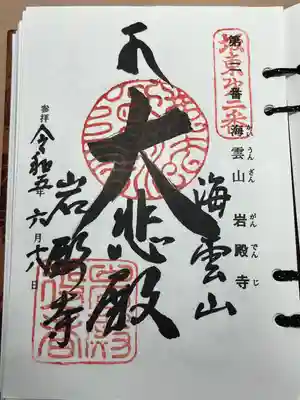 第二番 海雲山 岩殿寺
かい うん ざん がん でん じ
坂東第二番
海雲山
大悲殿
岩殿寺
参拝 令和五年 六月十八日